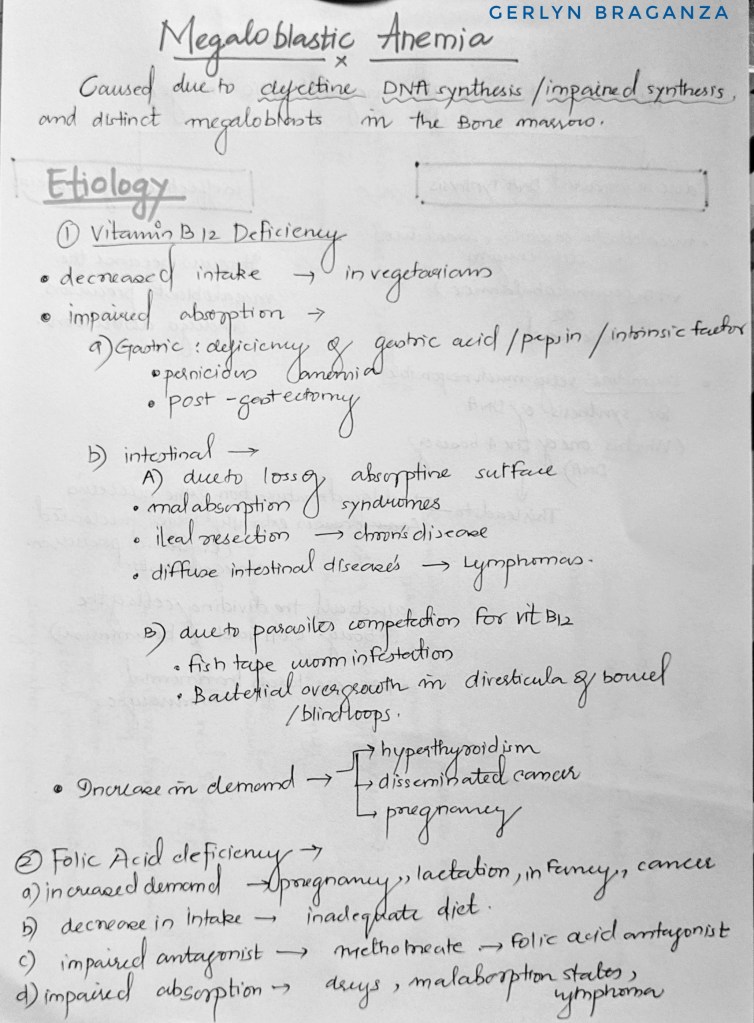 GERLYN BRAGANZA
Megaloblastic Anemia
x
Caused due to defective DNA synthesis / impaired synthesis,
and distinct megaloblasts in the Bone marrow.
Etiology
① Vitamin B12 Deficiency
• decreased intake → in vegetarians
• impaired absorption →
a) Gastric : deficiency of gastric acid / pepsin / intrinsic factor
• pernicious anemia
• post - gastectomy
b) intestinal →
A) due to loss of absorptine surface
• malabsorption syndromes
• ileal resection → chron's disease
• diffuse intestinal diseases → Lymphomas.
B) due to parasites competection for vit B12
• fish tape worm infestation
• Bacterial overgrowth in diverticula of bowel
/ blindloops.
→ hyperthyroidism
• Increase in demand → → disseminated cancer
→ pregnancy
② Folic Acid deficiency →
a) increased demand → pregnancy,, lactation, infancy,, cancer
b) decrease in intake → inadequate diet.
c) impaired antagonist → methotreate → folic acid antagonist
d) impaired absorption → drugs, malaborption states,
lymphoma